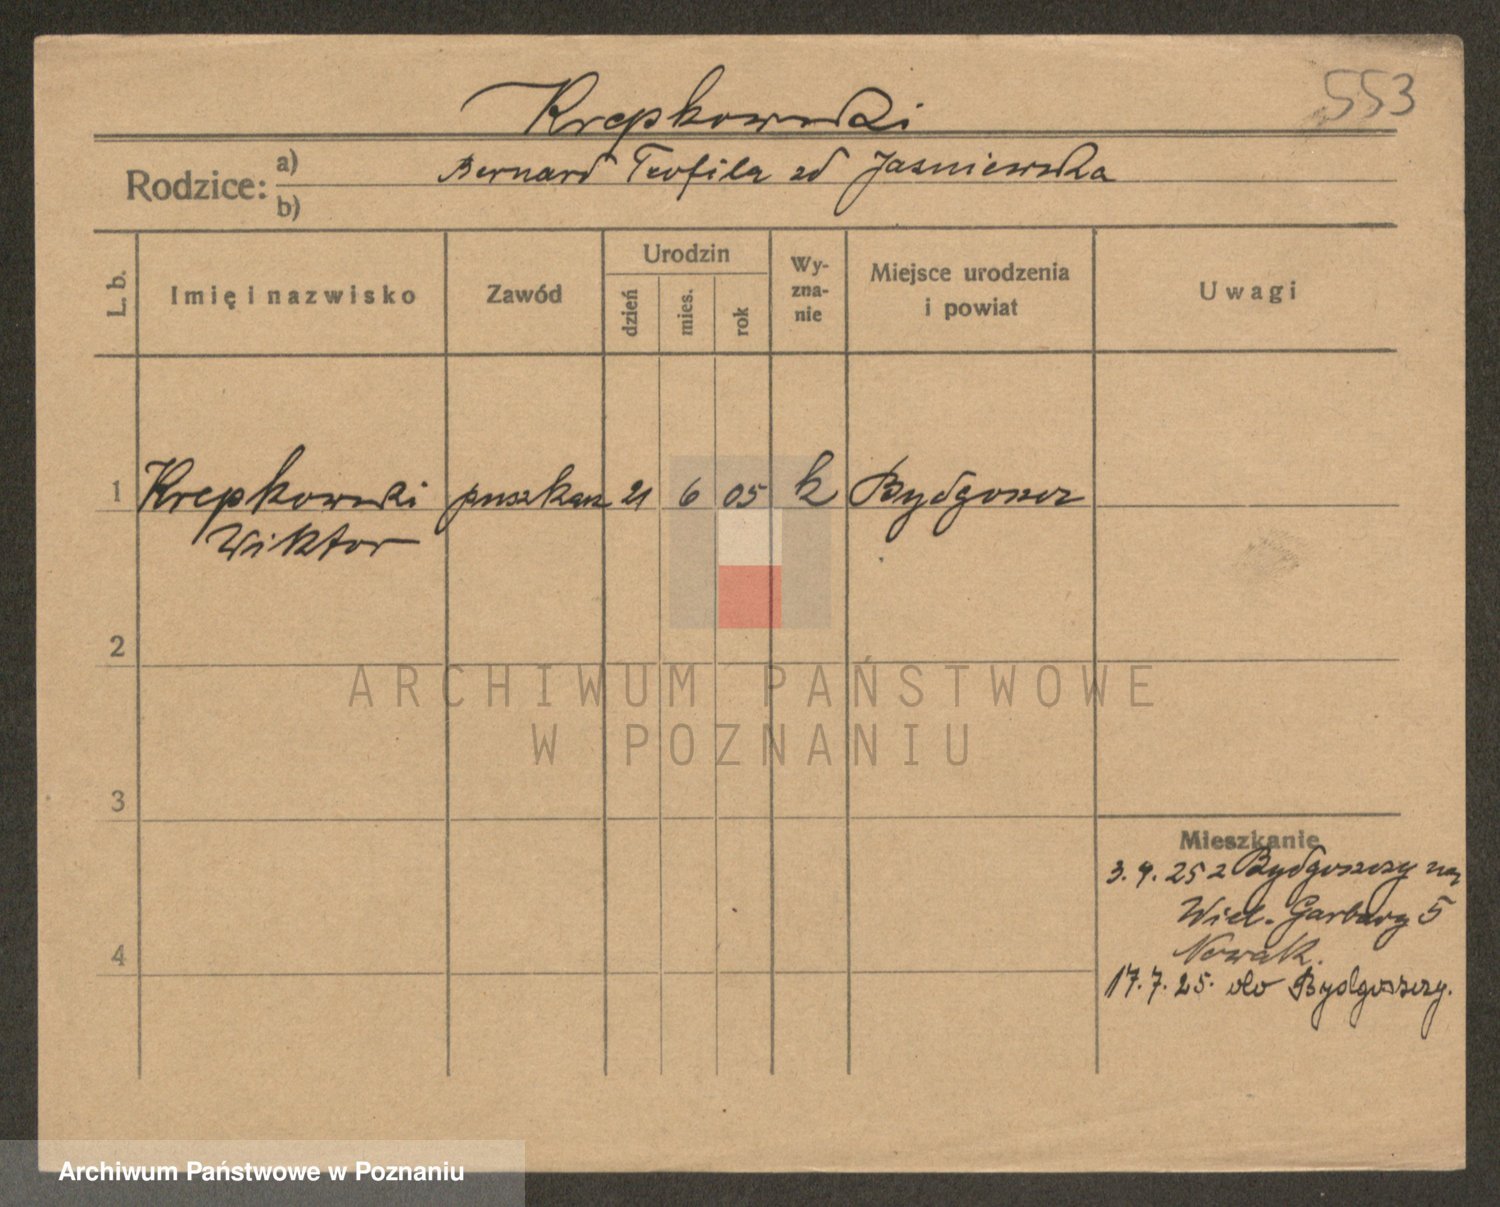 553
Krepkowski
Rodzice: a) Bernard Teofila zd Jasniewska
b)
L. b.
Imię i nazwisko
Zawód
Urodzin
dzień
mies.
rok
Wy-
zna-
nie
Miejsce urodzenia
i powiat
Uwagi
1 Krepkowski puszkarz 21 6 05 k Bydgoszcz
Wiktor
2
ARCHIWUM PAŃSTWOWE
W POZNANIU
3
Mieszkanie
25 z Bydgoszczy na
Wiel. Garbary 5
4 Nowak.
17.7.25. do Bydgoszczy.
Archiwum Państwowe w Poznaniu